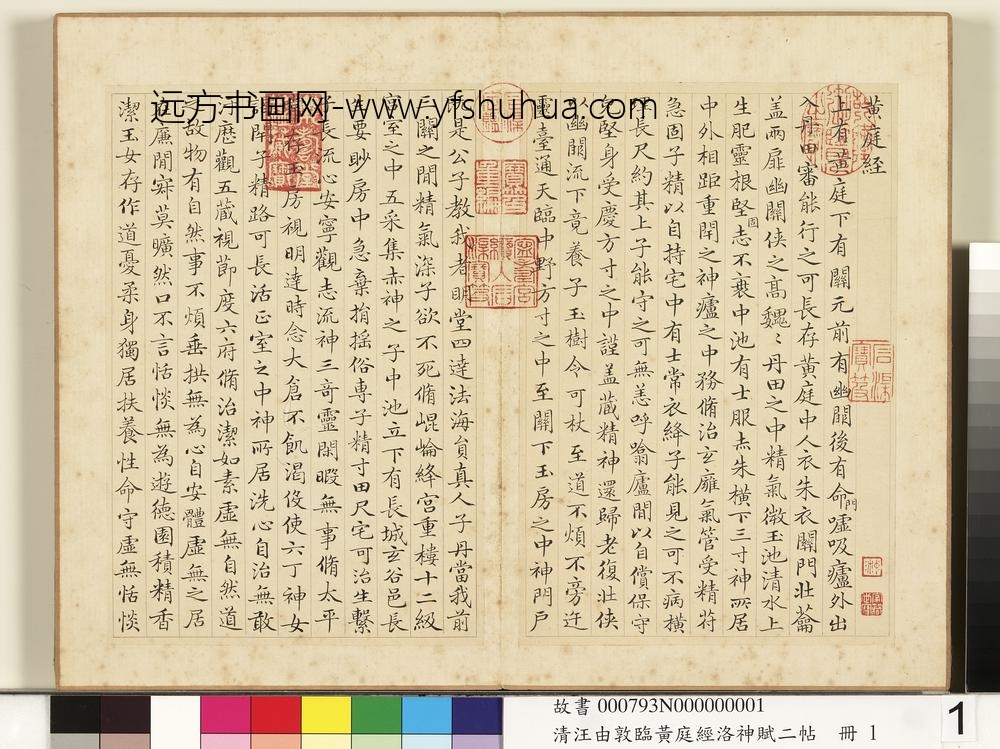 黃庭經
上有黃庭下有關元前有幽闕後有命門噓吸廬外出
入丹田審能行之可長存黃庭中人衣朱衣關門壯蘥
蓋兩扉幽關俠之高魏〻丹田之中精氣微玉池清水上
生肥靈根堅固志不衰中池有士服赤朱橫下三寸神所居
中外相距重閉之神廬之中務脩治玄廱氣管受精符
急固子精以自持宅中有士常衣絳子能見之可不病橫
理長尺約其上子能守之可無恙呼噏廬間以自償保守
完堅身受慶方寸之中謹蓋藏精神還歸老復壯俠
以幽闕流下竟養子玉樹令可杖至道不煩不旁迕
靈臺通天臨中野方寸之中至關下玉房之中神門戶
既是公子教我者明堂四達法海員真人子丹當我前
三關之間精氣深子欲不死脩崐崘絳宮重樓十二級
宮室之中五采集赤神之子中池立下有長城玄谷邑長
生要眇房中急棄捐搖俗專子精寸田尺宅可治生繫
子長流心安寧觀志流神三奇靈閑暇無事脩太平
常存玉房視明達時念大倉不飢渴伇使六丁神女
謁閉子精路可長活正室之中神所居洗心自治無敢
汙歷觀五藏視節度六府脩治潔如素虛無自然道
之故物有自然事不煩垂拱無為心自安體虛無之居
在廉間寂莫曠然口不言恬惔無為遊德園積精香
潔玉女存作道憂柔身獨居扶養性命守虛無恬惔
远方书画网-www.yfshuhua.com
故書 000793N000000001
清汪由敦臨黃庭經洛神賦二帖 冊 1
1